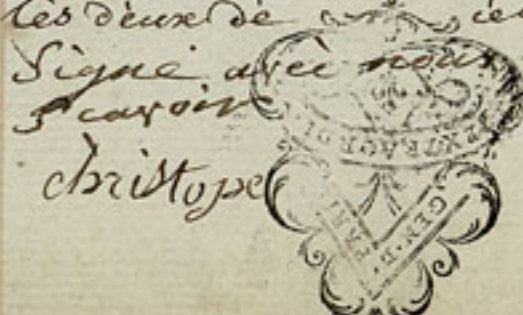 les deux de
Signé avec nous
scavoir
christope
EXTRAORD.
GEN. D. PARI